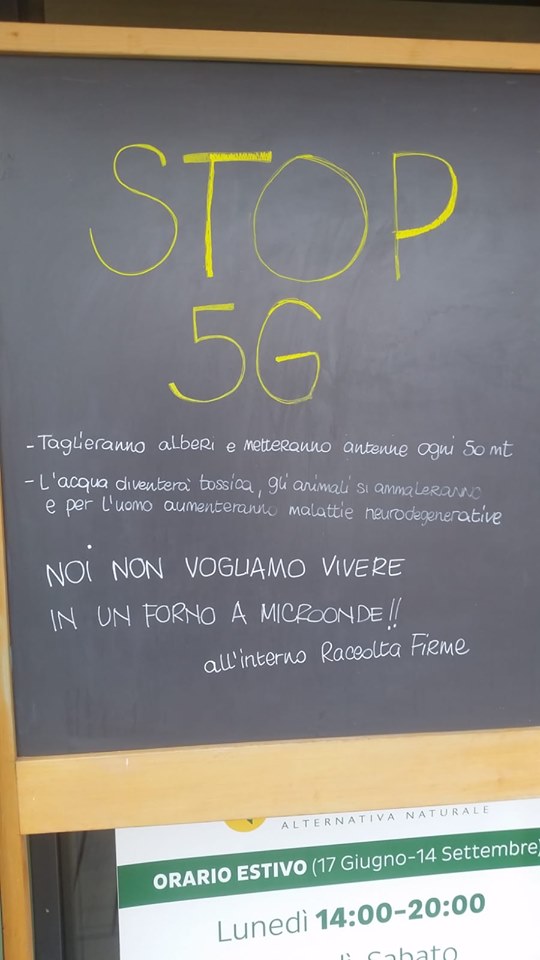 STOP
5G
- Taglieranno alberi e metteranno antenne ogni 50 mt
- L'acqua diventerà tossica, gli animali si ammaleranno
e per l'uomo aumenteranno malattie neurodegenerative
NOI NON VOGLIAMO VIVERE
IN UN FORNO A MICROONDE!!
all'interno Raccolta Firme
ALTERNATIVA NATURALE
ORARIO ESTIVO (17 Giugno-14 Settembre)
Lunedì 14:00-20:00
Sabato